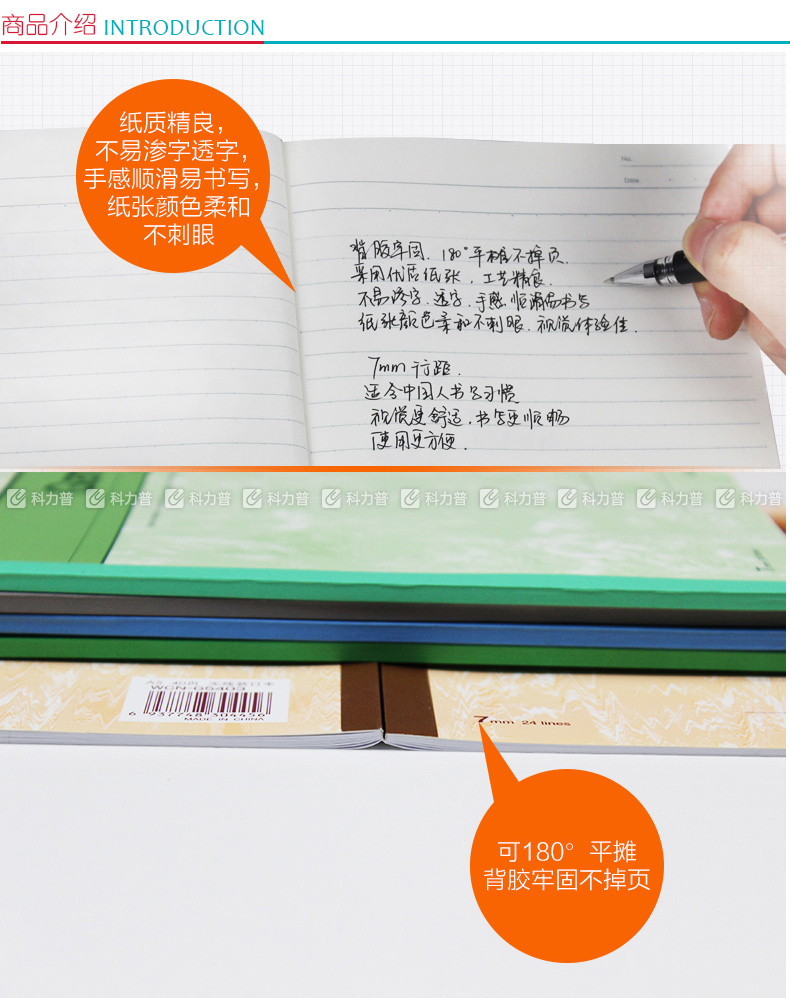 商品介绍 INTRODUCTION
纸质精良，
不易渗字透字，
手感顺滑易书写，
纸张颜色柔和
不刺眼
No.
Date
背胶牢固, 180°平摊不掉页.
采用优质纸张, 工艺精良.
不易渗字、透字、手感顺滑易书写
纸张颜色柔和不刺眼, 视觉体验佳.
7mm 行距.
适合中国人书写习惯
视觉更舒适, 书写更顺畅
使用更方便.
科力普 科力普 科力普 科力普 科力普 科力普 科力普 科力普 科力普 科力普
A5 40页 无线装订本
WCN-G5403
6 937748 304456
MADE IN CHINA
7mm 24 lines
可180°平摊
背胶牢固不掉页